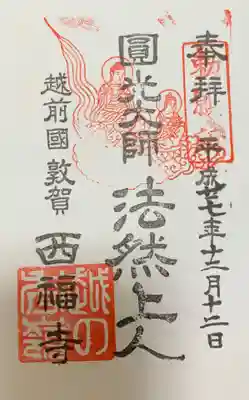 奉拝 平成廿七年十二月十二日
圓光大師 法然上人
越前國敦賀 西福寺
越の